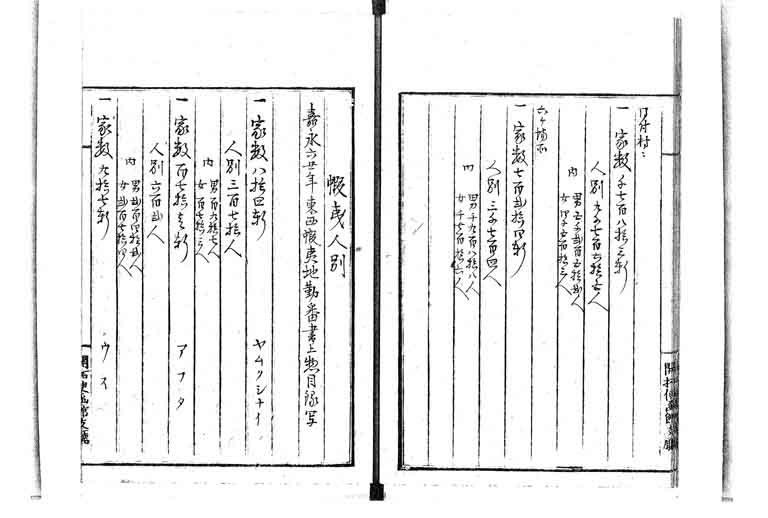 一 家数 千七百八拾三軒
人別 九千七百六拾五人
内
男 五千弐百五拾弐人
女 四千五百拾三人
六ケ場所
一 家数 七百弐拾四軒
人別 三千七百四人
内
男 千九百八拾八人
女 千七百拾六人
蝦夷人別
嘉永六丑年 東西蝦夷地勤番書上惣目録写
一 家数 八拾四軒 ヤムクシナイ
人別 三百七拾人
内
男 百九拾七人
女 百七拾三人
一 家数 百七拾壱軒 アフタ
人別 六百弐人
内
一 家数 九拾七軒 ウス